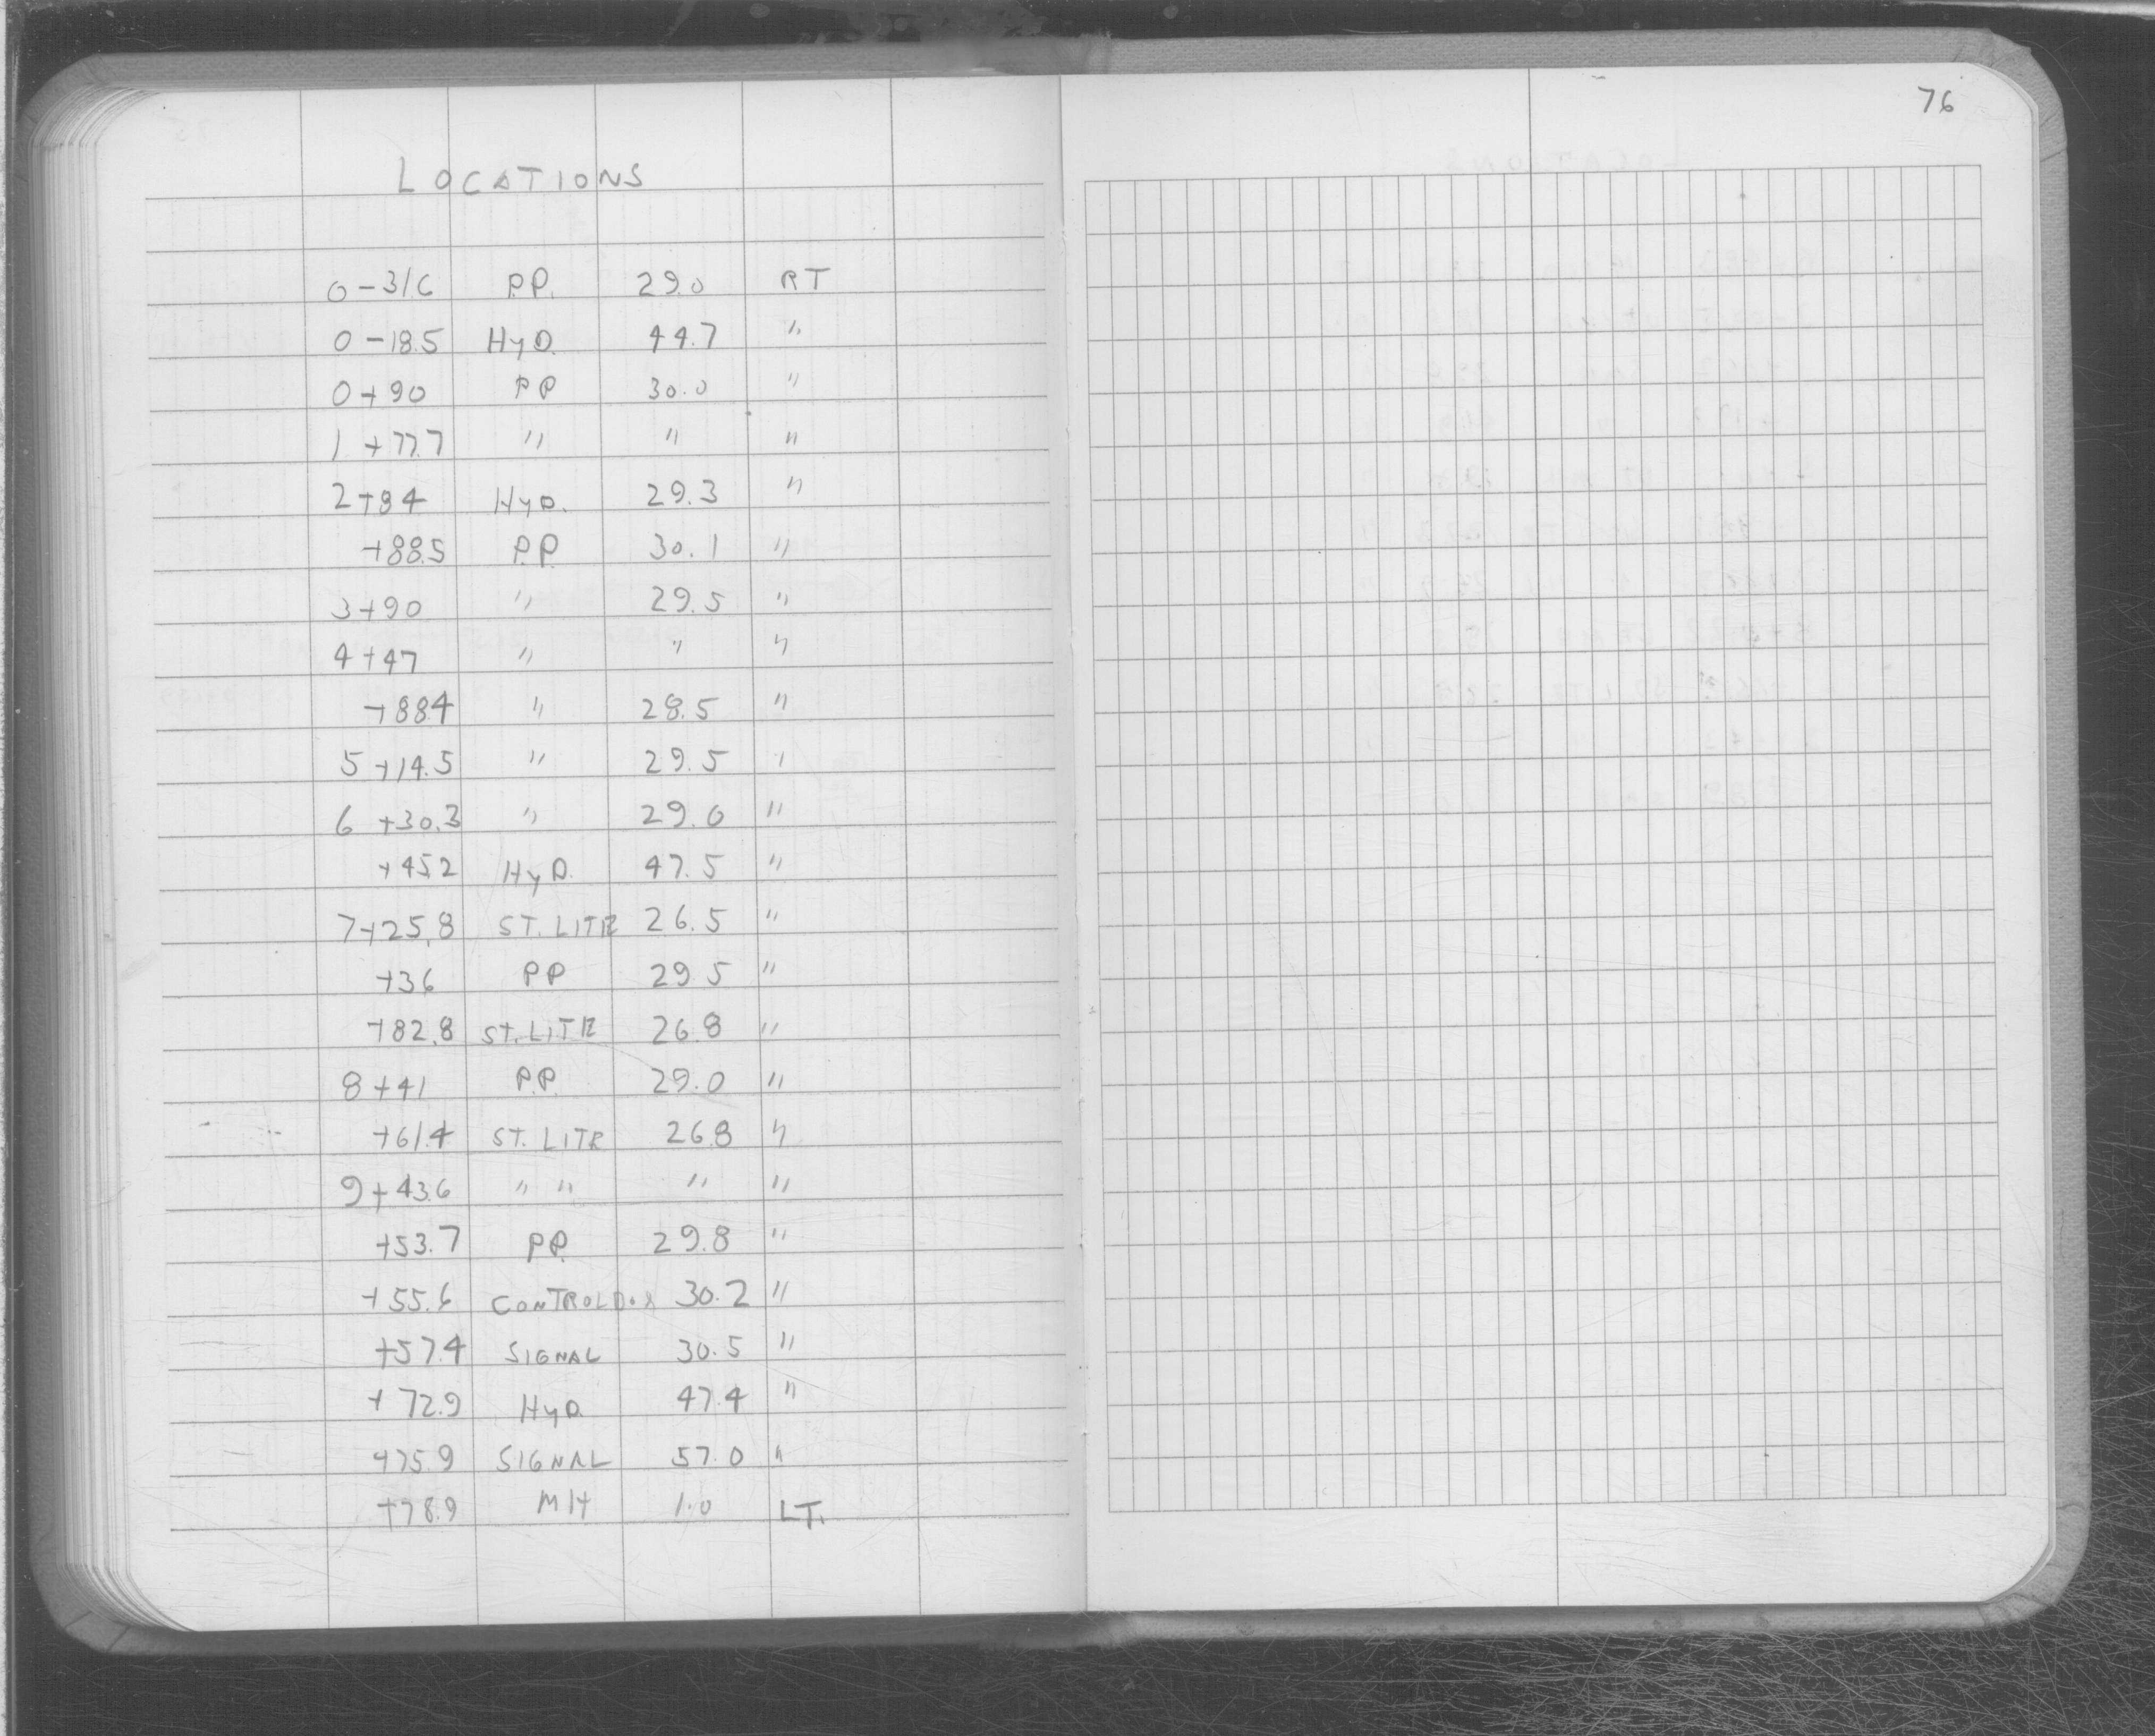 76
LOCATIONS
0-31.6 P.P. 29.0 RT
0-18.5 HYD. 44.7 "
0+90 PP 30.0 "
1+77.7 " " "
2+84 HYD. 29.3 "
+88.5 P.P. 30.1 "
3+90 " 29.5 "
4+47 " " "
+88.4 " 28.5 "
5+14.5 " 29.5 "
6+30.3 " 29.0 "
+45.2 HYD. 47.5 "
7+25.8 ST. LITE 26.5 "
+36 PP 29.5 "
+82.8 ST. LITE 26.8 "
8+41 P.P. 29.0 "
+61.4 ST. LITE 26.8 "
9+43.6 " " " "
+53.7 P.P. 29.8 "
+55.6 CONTROL BOX 30.2 "
+57.4 SIGNAL 30.5 "
+72.9 HYD. 47.4 "
+75.9 SIGNAL 57.0 "
+78.9 MH 1.0 LT.